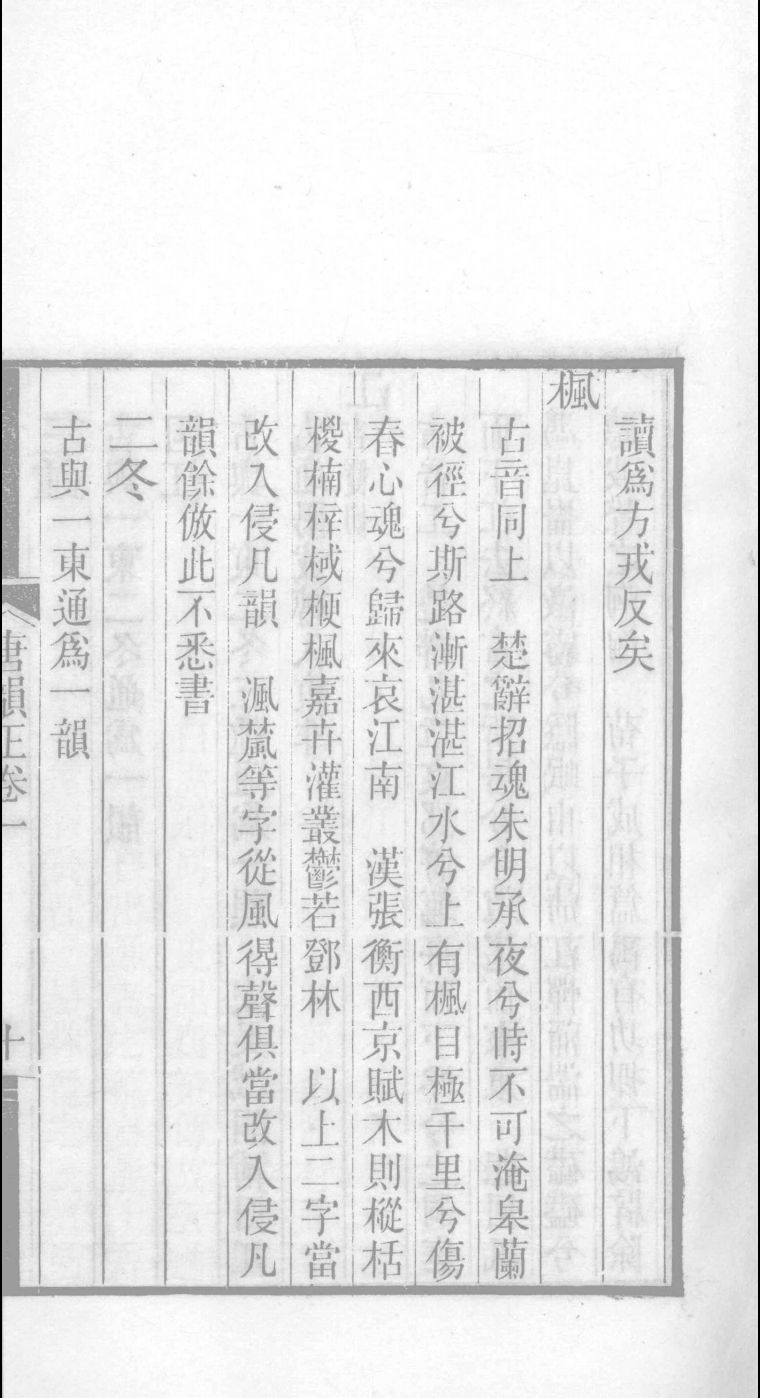 讀爲方戎反矣
楓
古音同上　楚辭招魂朱明承夜兮時不可淹皋蘭
被徑兮斯路漸湛湛江水兮上有楓目極千里兮傷
春心魂兮歸來哀江南　漢張衡西京賦木則樅栝
椶楠梓棫楩楓嘉卉灌叢鬱若鄧林　以上二字當
改入侵凡韻　渢葻等字從風得聲俱當改入侵凡
韻餘倣此不悉書
二冬
古與一東通爲一韻
唐韻正卷一
十